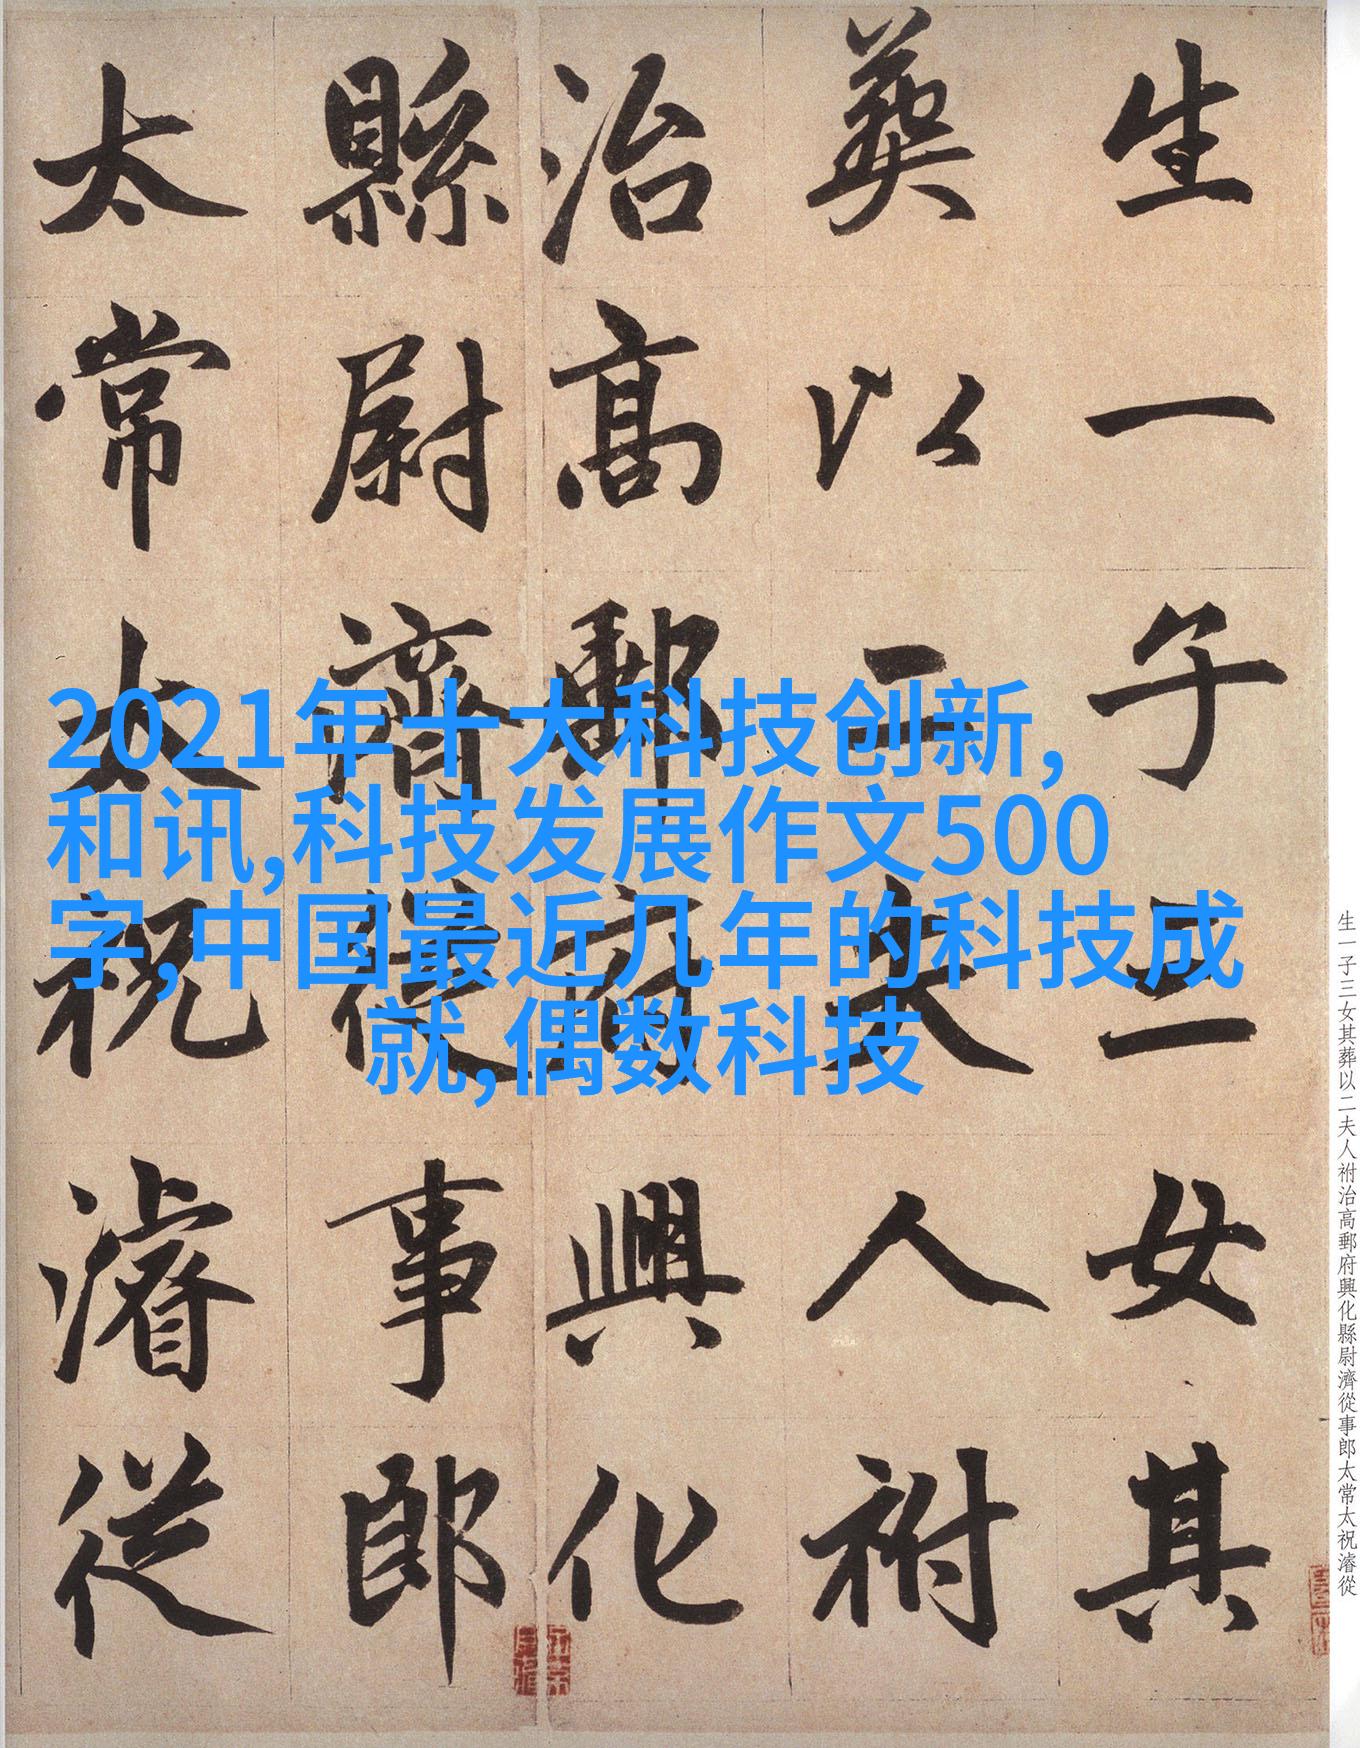 生一子三女其
葬以二夫人祔
治高郵府興化
縣尉濟從事郎
太常太祝濬從
2021年十大科技创新,
和讯,科技发展作文500
字,中国最近几年的科技成
就,偶数科技
生一子三女其葬以二夫人祔治高郵府興化縣尉濟從事郎太常太祝濬從